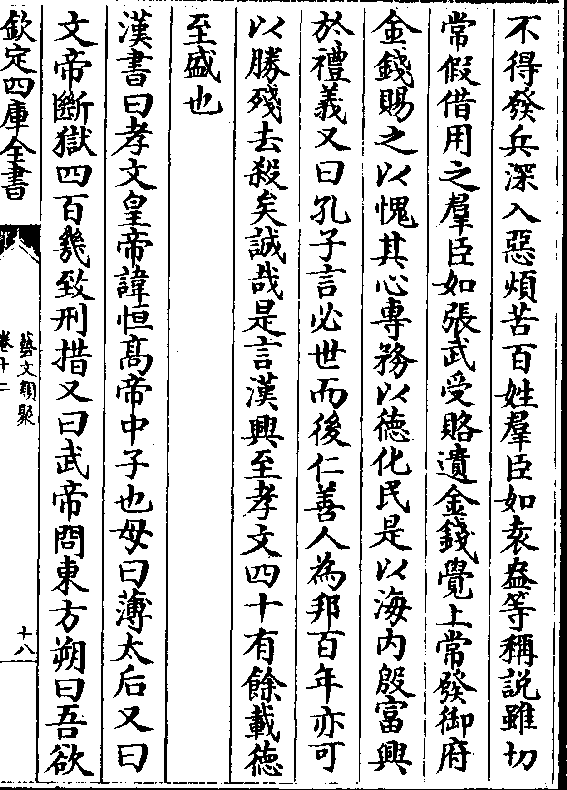 不得發兵深入惡煩苦百姓羣臣如袁盎等稱說雖切
常假借用之羣臣如張武受賂遺金錢覺上常發御府
金錢賜之以愧其心專務以德化民是以海内殷富興
於禮義又曰孔子言必世而後仁善人為邦百年亦可
以勝殘去殺矣誠哉是言漢興至孝文四十有餘載德
至盛也
漢書曰孝文皇帝諱恒髙帝中子也母曰薄太后又曰
文帝斷獄四百幾致刑措又曰武帝問東方朔曰吾欲
欽定四庫全書
藝文類聚
卷十二
十八